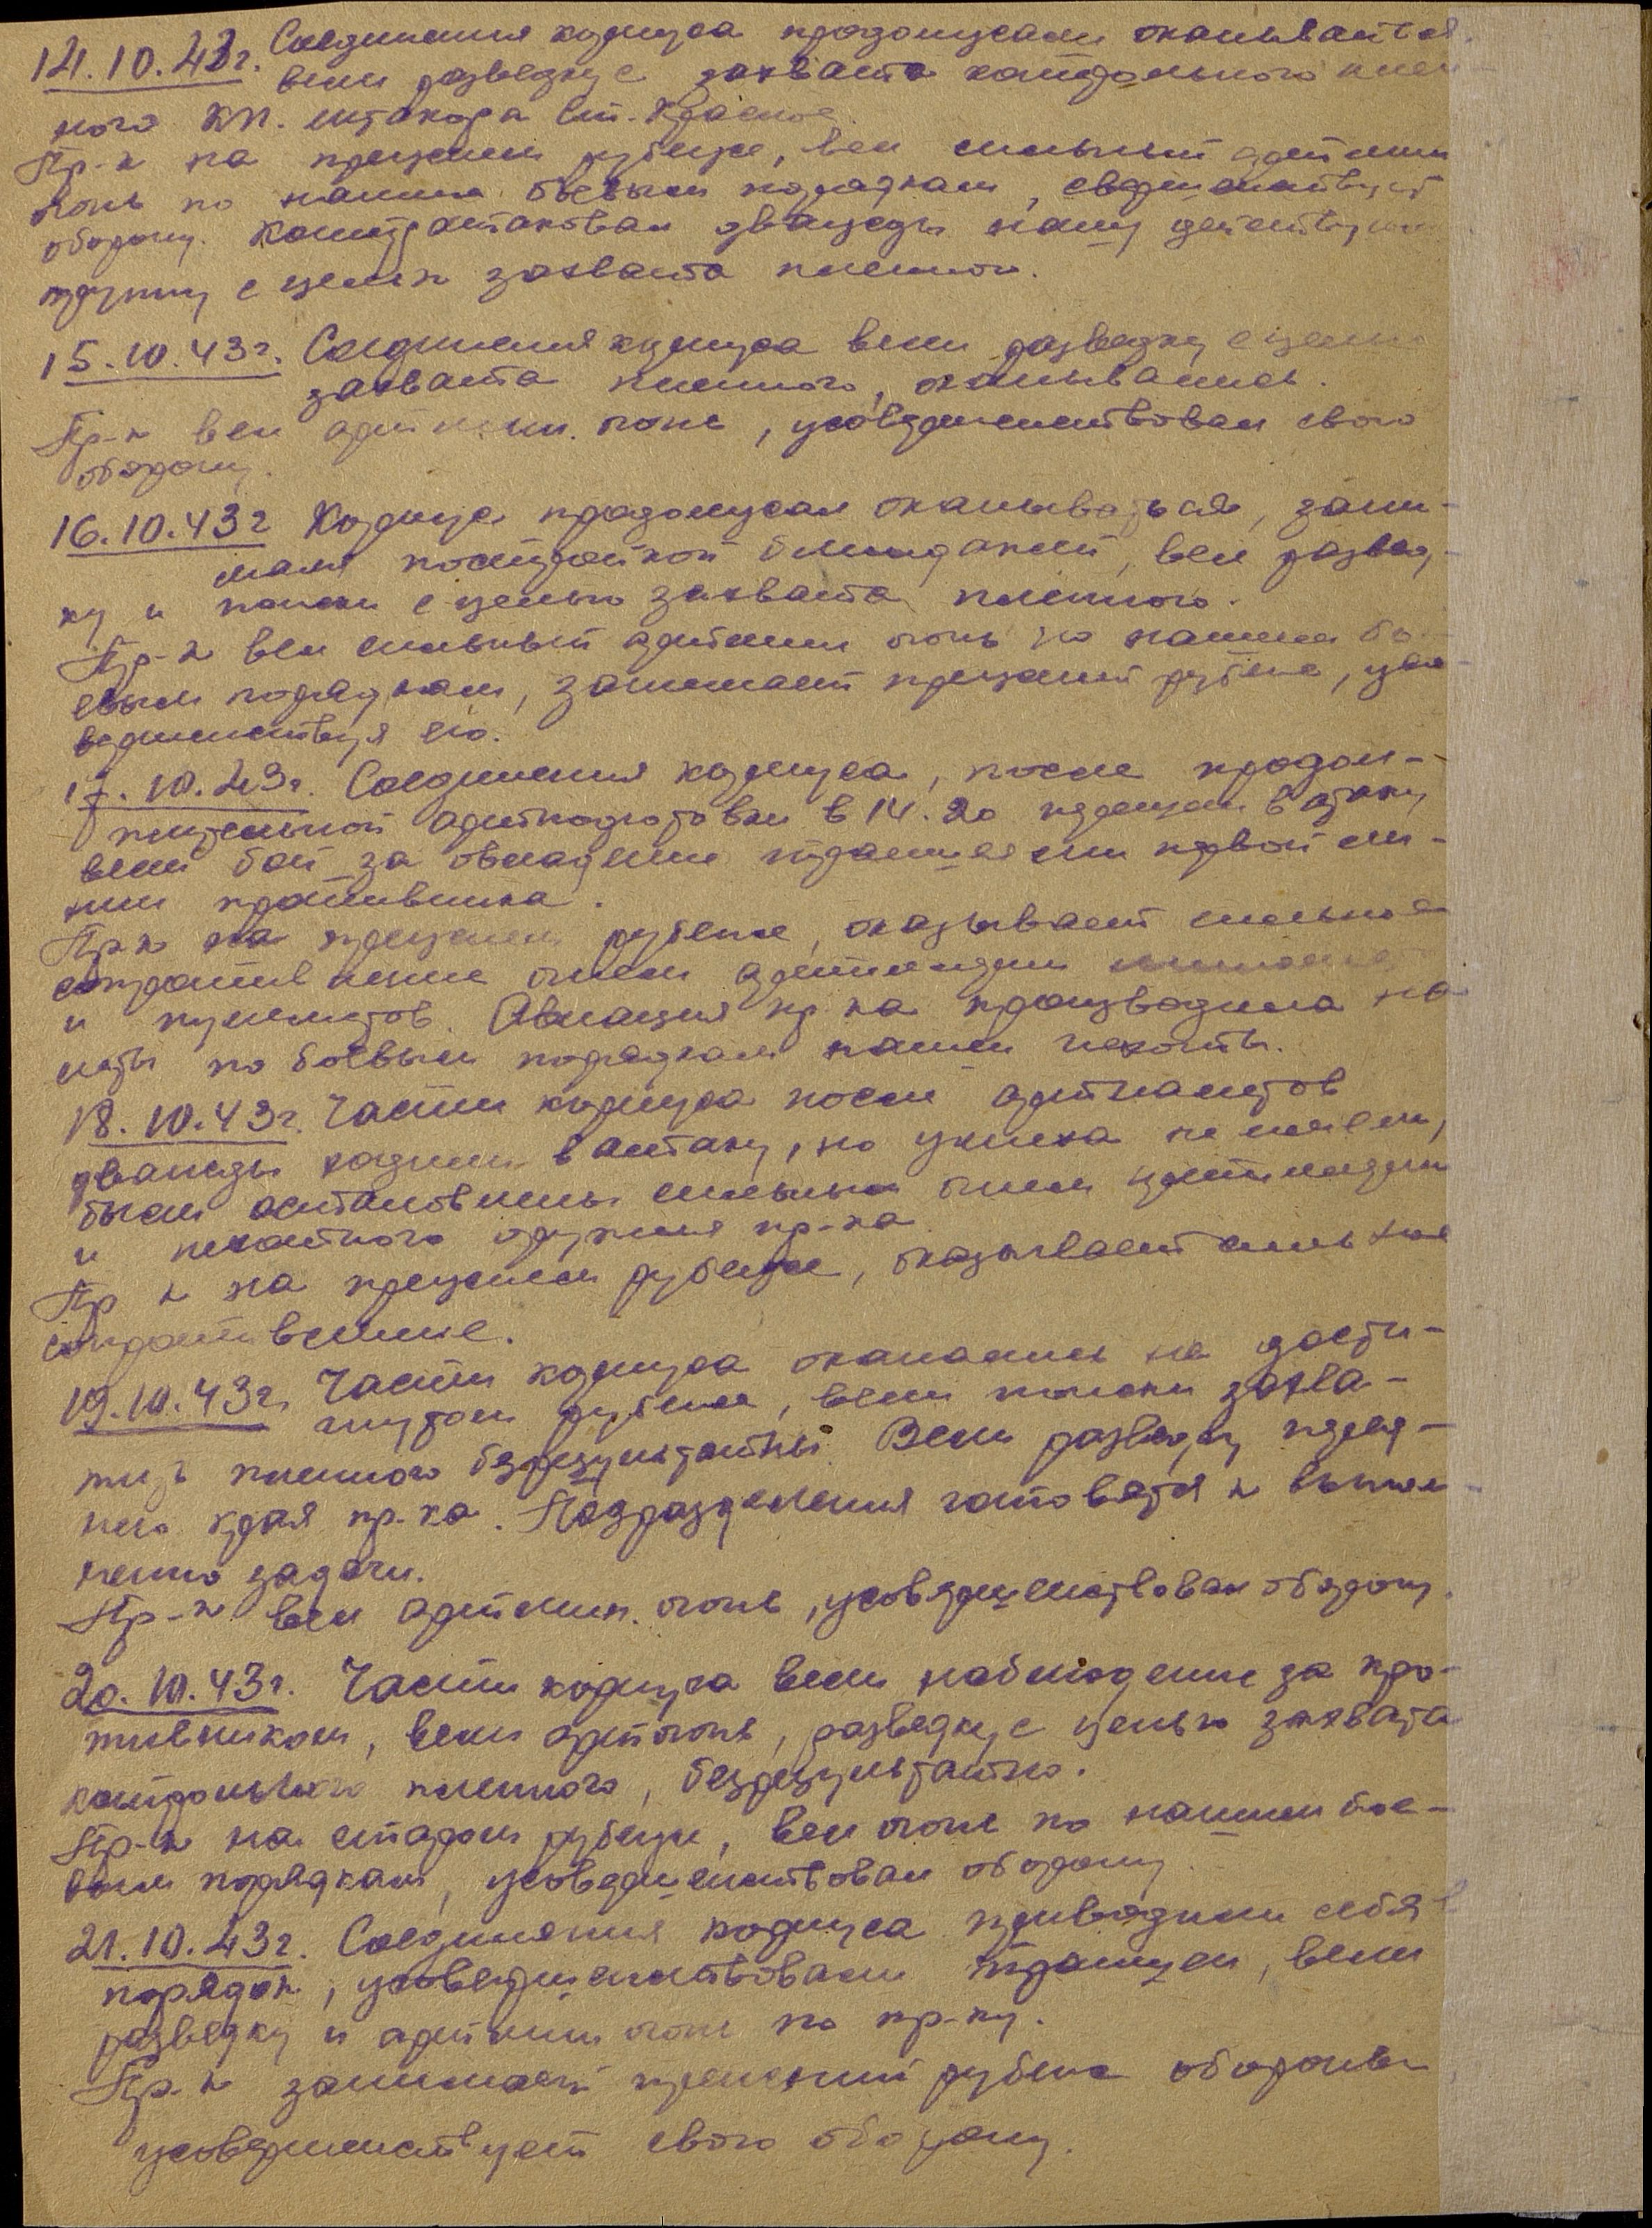 14.10.43г. Соединения корпуса продолжали окапываться
вели разведку с захвата контрольного плен-
ного КП. штакора Ст. Красное
Пр-к на прежнем рубеже, вел сильный артмин
огонь по нашим боевым порядкам,
оборону. Контратаковал дважды нашу действующ
группу с целью захвата пленного.
15.10.43г. Соединения корпуса вели разведку с целью
захвата пленного, окапывались.
Пр-к вел арт. мин. огонь, усовершенствовал свою
оборону.
16.10.43г Корпус продолжал окапываться, зани-
мался постройкой блиндажей, вел развед-
ку и поиски с целью захвата пленного.
Пр-к вел сильный артмин огонь по нашим бо-
евым порядкам, занимает прежний рубеж, усо-
вершенствуя его.
17.10.43г. Соединения корпуса, после продол-
жительной артподготовки в 14.20 перешли в атаку
вели бой за овладение траншеями первой ли-
нии противника.
Пр-к на прежнем рубеже, оказывает сильное
сопротивление огнем артиллерии минометов
и пулеметов. Авиация пр-ка производила на-
леты по боевым порядкам нашей пехоты.
18.10.43г. Части корпуса после артналетов
дважды ходили в аттаку, но успеха не имели,
были остановлены сильным огнем артиллерии
и пехотного оружия пр-ка
Пр к на прежнем рубеже, оказывает сильное
сопротивление.
19.10.43г. Части корпуса окопались на дости-
гнутом рубеже, вели поиски захва-
тить пленного безрезультатны. Вели разведку перед-
него края пр-ка. Подразделения готовятся к выпол-
нению задачи.
Пр-к вел арт.мин. огонь, усовершенствовал оборону.
20.10.43г. Части корпуса вели наблюдение за про-
тивником, вели артогонь, разведку с целью захвата
контрольного пленного, безрезультатно.
Пр-к на старом рубеже, вел огонь по нашим бое-
вым порядкам, усовершенствовал оборону.
21.10.43г. Соединения корпуса приводили себя в
порядок, усовершенствовали траншеи, вели
разведку и артмин огонь по пр-ку.
Пр-к занимает прежний рубеж обороны
усовершенствует свою оборону.